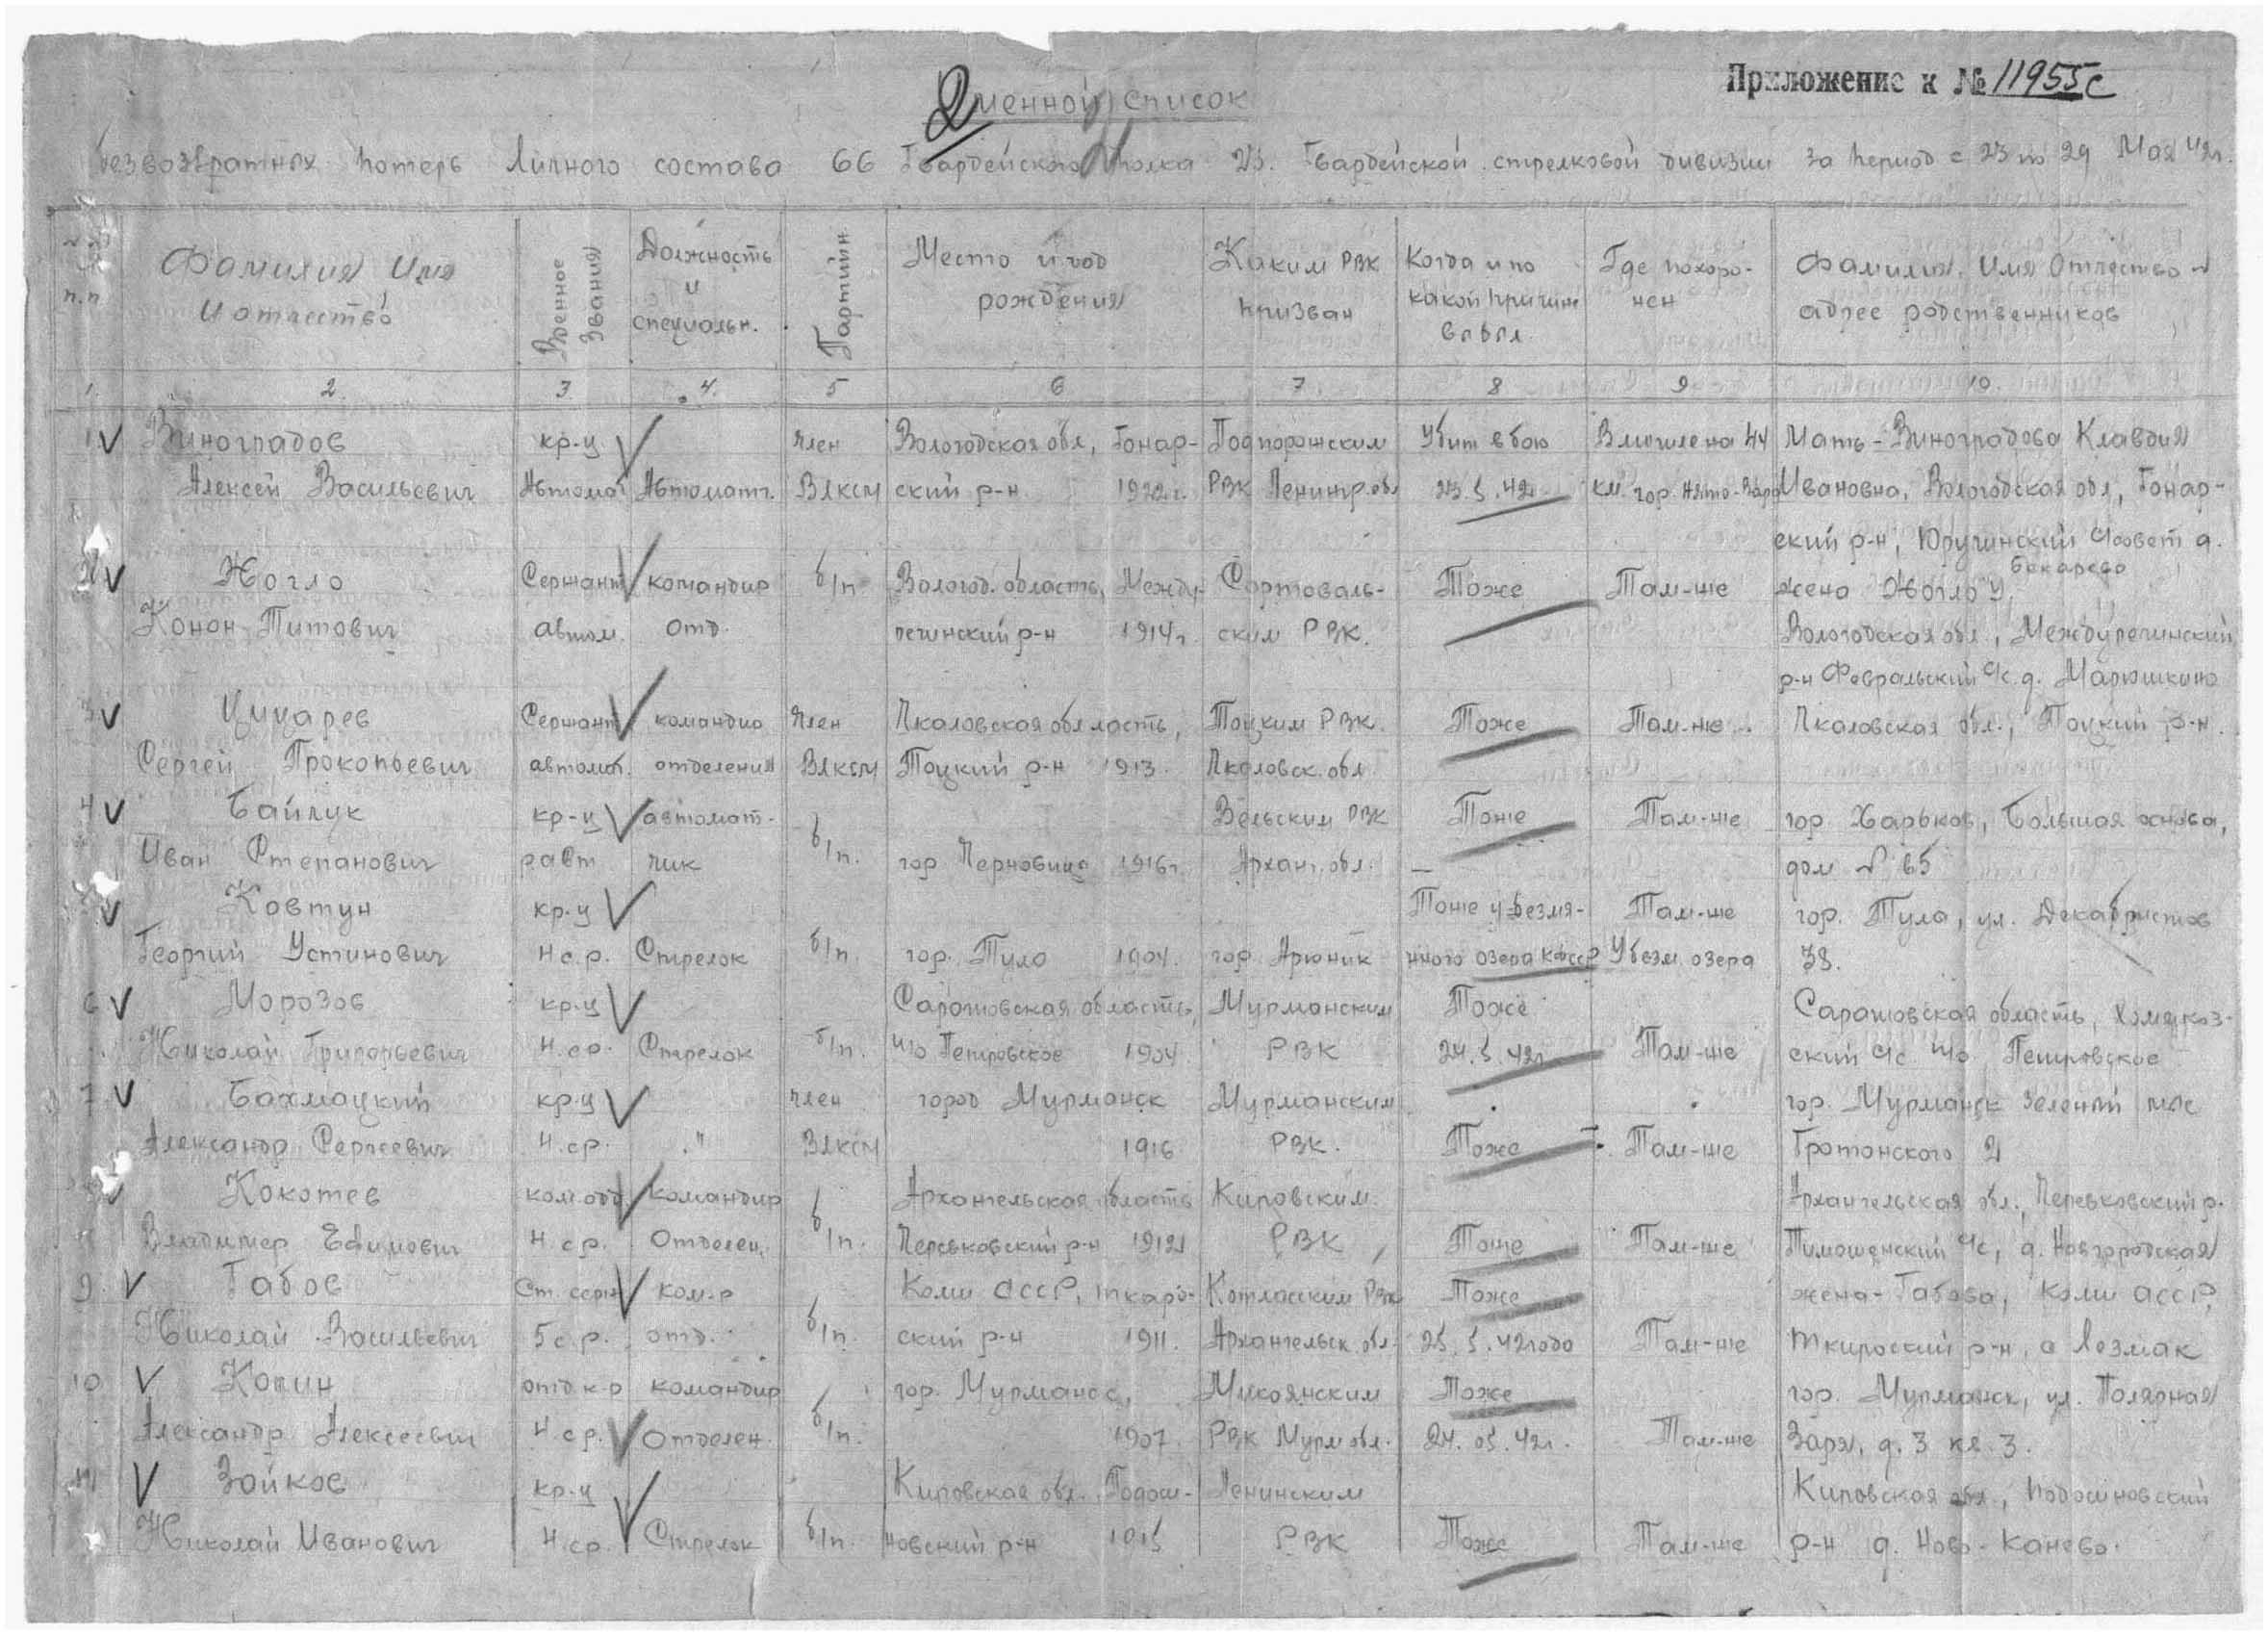 Приложение к № 11955с
Именной список
безвозвратных потерь личного состава 66 Гвардейского полка 23. Гвардейской стрелковой дивизии за период с 23 по 29 Мая 42г.
п.п
Фамилия Имя и отчество
Военное звание
Должность и специальн.
Партийн
Место и год рождения
Каким РВК призван
Когда и по какой причине выбыл
Где похоронен
Фамилия, Имя Отчество и адрес родственников
1. 2. 3 4. 5 6 7. 8 9 10.
1 Виноградов кр-ц член Вологодская обл, Гонар- Подпорожским Убит в бою В могиле на 44 Мать - Виноградова Клавдия
Алексей Васильевич Автомат Автоматч. ВЛКСМ ский р-н 1922г. РВК Ленингр.обл 23.5.42г. км. гор. Ивановна, Вологодская обл, Гонар-
ский р-н, Юручинский С/совет д.
Бекарево
2 Жогло Сержант командир б/п Вологод. область, Между- Сортоваль- Тоже Там-же жена Жогло У.
Конон Титович автом. отд. реченский р-н 1914г. ским РВК. Вологодская обл., Междуреченский
р-н Февральский С/с. д. Марюшкино
3 Цицарев Сержант командир Член Чкаловская обл ласть, Тоцким РВК. Тоже Там-же Чкаловская обл., Тоцкий р-н.
Сергей Прокопьевич автомат. отделения ВЛКСМ Тоцкий р-н 1913. Чкаловск. обл
4 Байлук кр-ц автомат- Вельским РВК Тоже Там-же гор. Харьков, Большая основа,
Иван Степанович равт чик б/п. гор Черновицы 1916г Арханг. обл. — дом № 65
Ковтун кр-ц Тоже у безмя- Там-же гор. Тула, ул. Декабристов
Георгий Устинович Н с.р. Стрелок б/п гор. Тула 1904. гор. нного озера КФССР У безм. озера 38.
6 Морозов кр-ц Саратовская область, Мурманским Тоже Саратовская область,
Николай Григорьевич Н. ср. Стрелок б/п. Петровское 1904. РВК 24.5.42г. Там-же ский с/с Петровское
7. Бахмацкий кр-ц член город Мурманск Мурманским гор. Мурманск Зеленый мыс
Александр Сергеевич Н. ср. " ВЛКСМ 1916 РВК. Тоже Там-же Тротонского 2
Кокотев ком.отд командир Архангельская область Кировским Архангельская обл., Черевковский р.
Владимер Ефимович Н. с р. Отделен. б/п. Черевковский р-н 1912 РВК Тоже Там-же Тимошенский с/с, д. Новгородская
9. Габов Ст. серж ком-р Коми АССР, Котласским РВК Тоже жена - Габова, Коми АССР,
Николай Васильевич 5 с.р. отд. б/п. ский р-н 1911. Архангельск. обл. 25.5.42года Там-же р-н, с Лозмак
10 Копин отд к-р командир гор. Мурманск, Микоянским Тоже гор. Мурманск, ул. Полярная
Александр Алексеевич Н. с р. Отделен. б/п. 1907. РВК Мурм обл. 24. 05. 42г. Там-же Заря, д. 3 кв. 3.
11 Зайков кр-ц Кировская обл. Подоси- Ленинским Кировская обл., Подосиновский
Николай Иванович Н. ср. Стрелок б/п. новский р-н 1915 РВК Тоже Там-же р-н д. Ново-Канево.